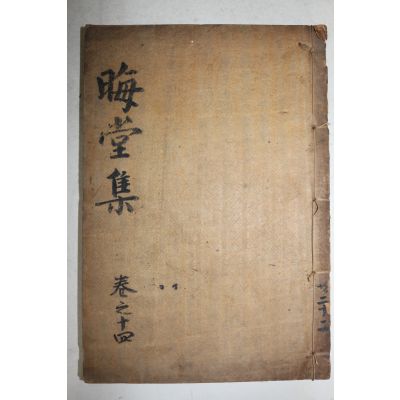 晦堂集
卷之十四